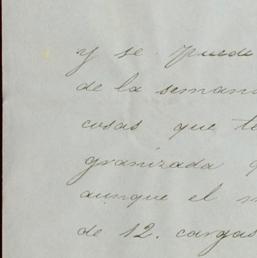 y se puede
de la seman
cosas que te
granizada q
aunque el m
de 12. cargas